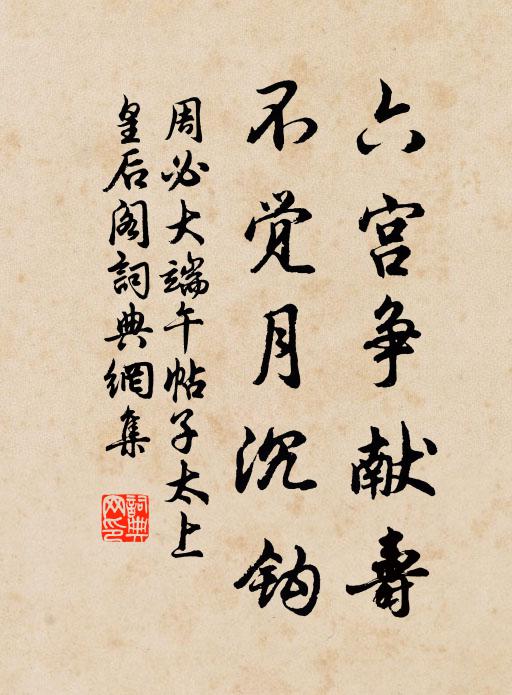 六宫争献寿
不觉月沉钩
周必大端午帖子太上
皇后阁詞典網集
詞典
网印